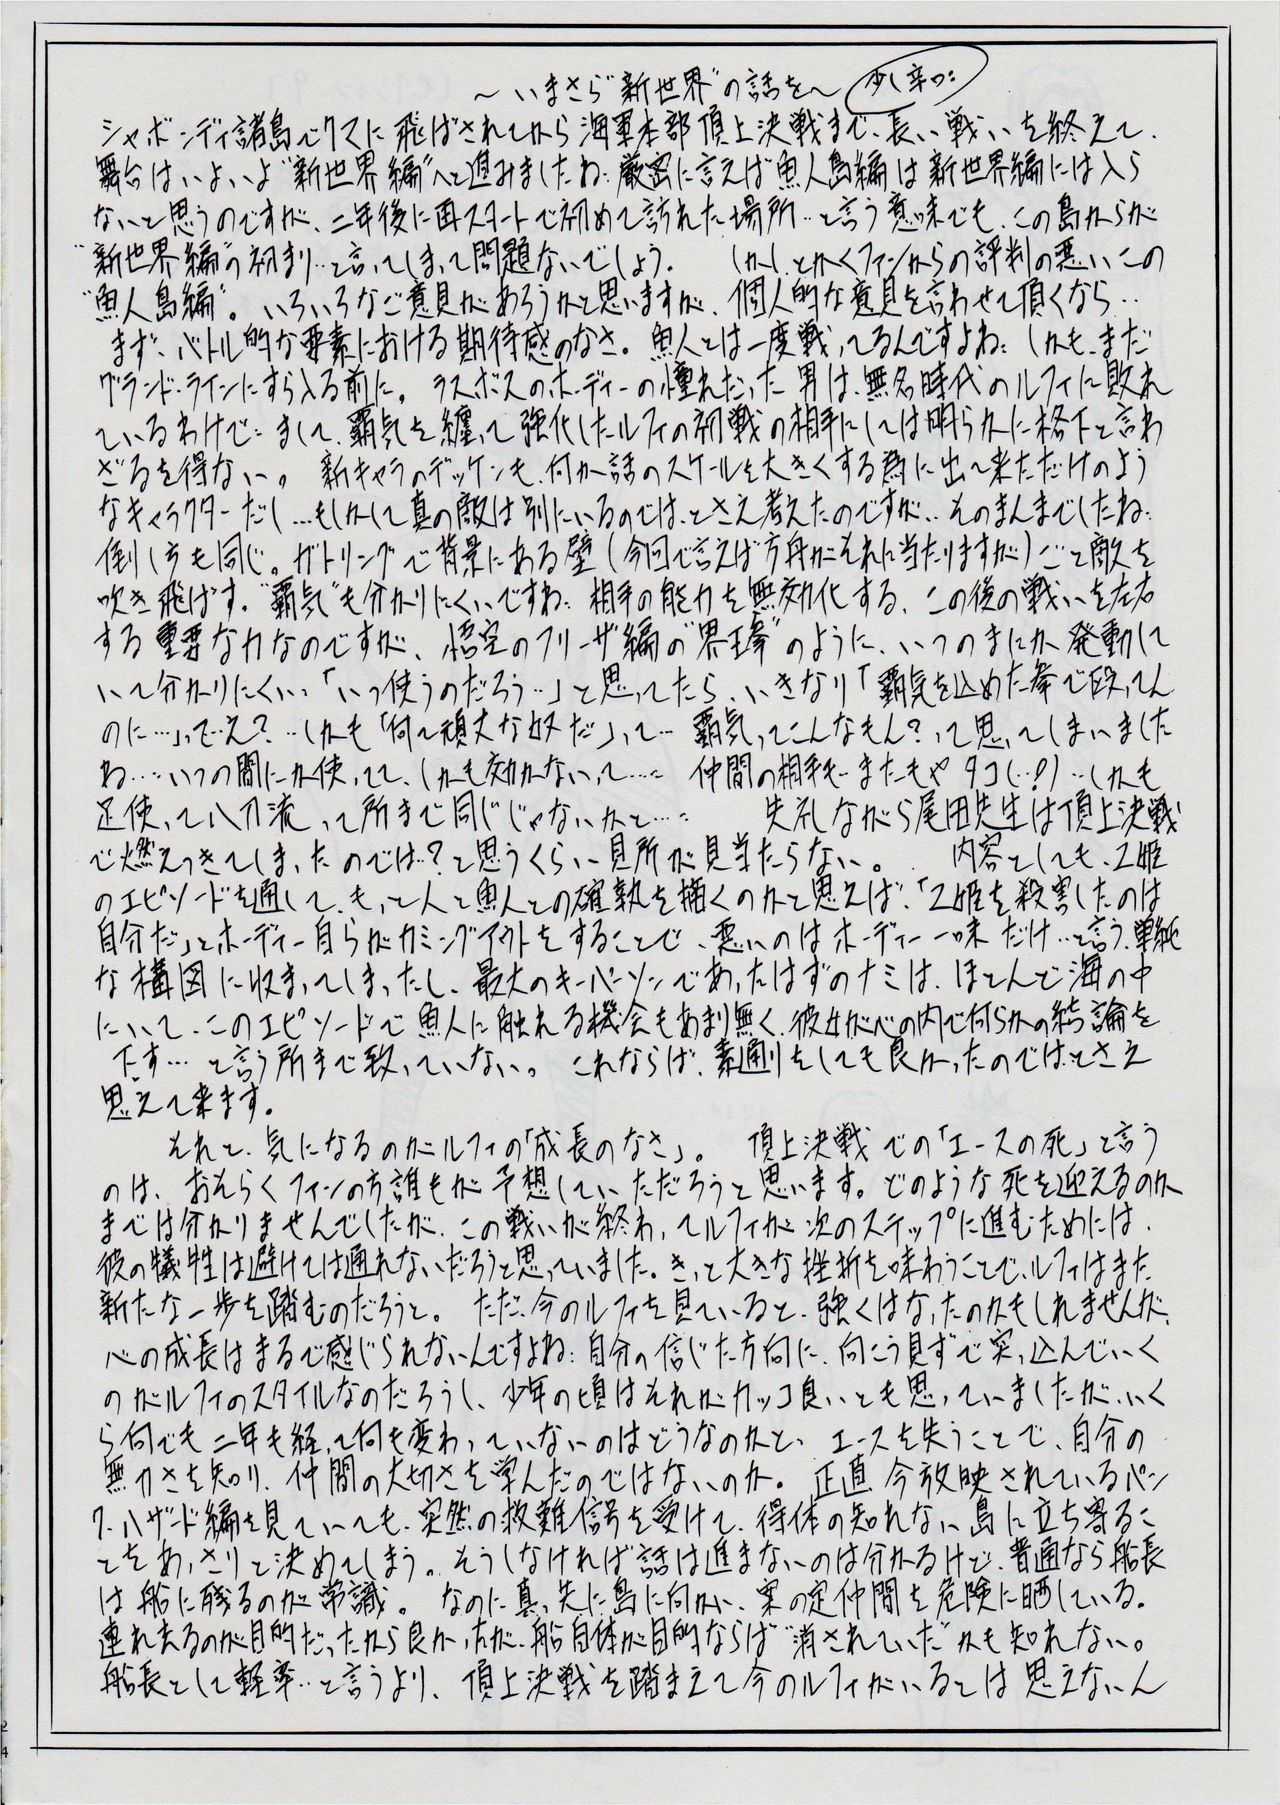 ～いまさら"新世界"の話を～ 少し辛口
シャボンディ諸島でクマに飛ばされてから海軍本部頂上決戦まで、長い戦いを終えて、
舞台はいよいよ"新世界編"へと進みましたね: 厳密に言えば魚人島編は新世界編には入ら
ないと思うのですが、二年後に再スタートで初めて訪れた場所…と言う意味でも、この島からが
"新世界編"の初まり…と言ってしまって問題ないでしょう。 しかし、とかくファンからの評判の悪いこの
"魚人島編"。いろいろなご意見があろうかと思いますが、個人的な意見を言わせて頂くなら…
まず、バトル的な要素における期待感のなさ。魚人とは一度戦ってるんですよね: しかも、まだ
グランド・ラインにすら入る前に。 ラスボスのホーディーの憧れだった男は、無名時代のルフィに敗れ
ているわけで: まして、覇気を纏って強化したルフィの初戦の相手にしては明らかに格下と言わ
ざるを得ない。 新キャラのデッケンも、何か話のスケールを大きくする為に出て来ただけのよう
なキャラクターだし…もしかして真の敵は別にいるのでは、とさえ考えたのですが、そのまんまでしたね:
倒し方も同じ。ガトリングで背景にある壁(今回で言えば方舟がそれに当たりますが)ごと敵を
吹き飛ばす。"覇気"も分かりにくいですね: 相手の能力を無効化する、この後の戦いを左右
する重要な力なのですが、悟空のフリーザ編の"界王拳"のように、いつのまにか発動して
いて分かりにくい。「いつ使うのだろう…」と思ってたら、いきなり「覇気を込めた拳で殴ってん
のに…」って…え？…しかも「何て頑丈な奴だ」って… 覇気ってこんなもん？って思ってしまいました
ね…いつの間にか使ってて、しかも効かないって… 仲間の相手も…またもやタコ(…!)…しかも
足使って八刀流って所まで同じじゃないかと… 失礼ながら尾田先生は頂上決戦
で燃えつきてしまったのでは？と思うくらい見所が見当たらない。 内容としても、乙姫
のエピソードを通して、もっと人と魚人との確執を描くのかと思えば、「乙姫を殺害したのは
自分だ」とホーディー自らがカミングアウトをすることで、悪いのはホーディー一味だけ…と言う、単純
な構図に収まってしまったし、最大のキーパーソンであったはずのナミは、ほとんど海の中
にいて、このエピソードで魚人に触れる機会もあまり無く、彼女が心の内で何らかの結論を
下す…と言う所まで致っていない。 これならば、素通りをしても良かったのでは、とさえ
思えて来ます。
それと、気になるのがルフィの「成長のなさ」。 頂上決戦での「エースの死」と言う
のは、おそらくファンの方誰もが予想していただろうと思います。どのような死を迎えるのか
までは分かりませんでしたが、この戦いが終わってルフィが次のステップに進むためには、
彼の犠牲は避けては通れないだろうと思っていました。きっと大きな挫折を味わうことで、ルフィはまた
新たな一歩を踏むのだろうと。 ただ、今のルフィを見ていると、強くはなったのかもしれませんが、
心の成長はまるで感じられないんですよね: 自分の信じた方向に、向こう見ずで突っ込んでいく
のがルフィのスタイルなのだろうし、少年の頃はそれがカッコ良いとも思っていましたが、いく
ら何でも二年も経って何も変わっていないのはどうなのかと、 エースを失うことで、自分の
無力さを知り、仲間の大切さを学んだのではないのか。 正直、今放映されているパン
ク・ハザード編を見ていても、突然の救難信号を受けて、得体の知れない島に立ち寄るこ
とをあっさりと決めてしまう。そうしなければ話は進まないのは分かるけど、普通なら船長
は船に残るのが常識。 なのに真っ先に島に向かい、案の定仲間を危険に晒している。
連れ去るのが目的だったから良かったが、船自体が目的ならば"消されていた"かも知れない。
船長として軽率…と言うより、頂上決戦を踏まえて今のルフィがいるとは思えないん
24